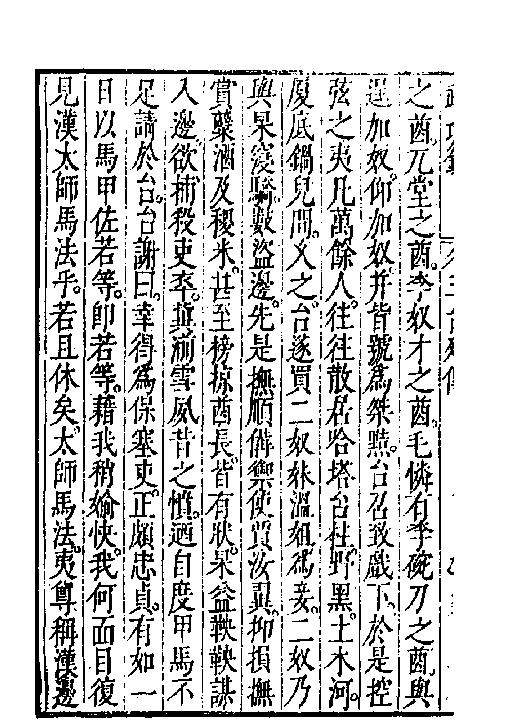 之酋。兀堂之酋。李奴才之酋。毛憐有李碗刀之酋。與
逞加奴。仰加奴。并皆號為桀黠。台召致戲下。於是控
弦之夷。凡萬餘人。往往散居哈塔台柱。野黑。土木河。
廈底鍋兒間。又之。台遂買二奴妹溫姐為妾。二奴乃
與杲寖驕。數盜邊。先是撫順備禦使賈汝翼。抑損撫
賞櫱酒及稷米。甚至榜掠酋長。皆有狀。杲益鞅鞅謀
入邊。欲捕殺吏卒。冀湔雪夙昔之憤。適自度甲馬不
足。請於台。台謝曰。幸得為保塞吏。正頗忠貞。有如一
日以馬甲佐若等。即若等。藉我稍媮快。我何面目復
見漢太師馬法乎。若且休矣。太師馬法。夷尊稱漢邊